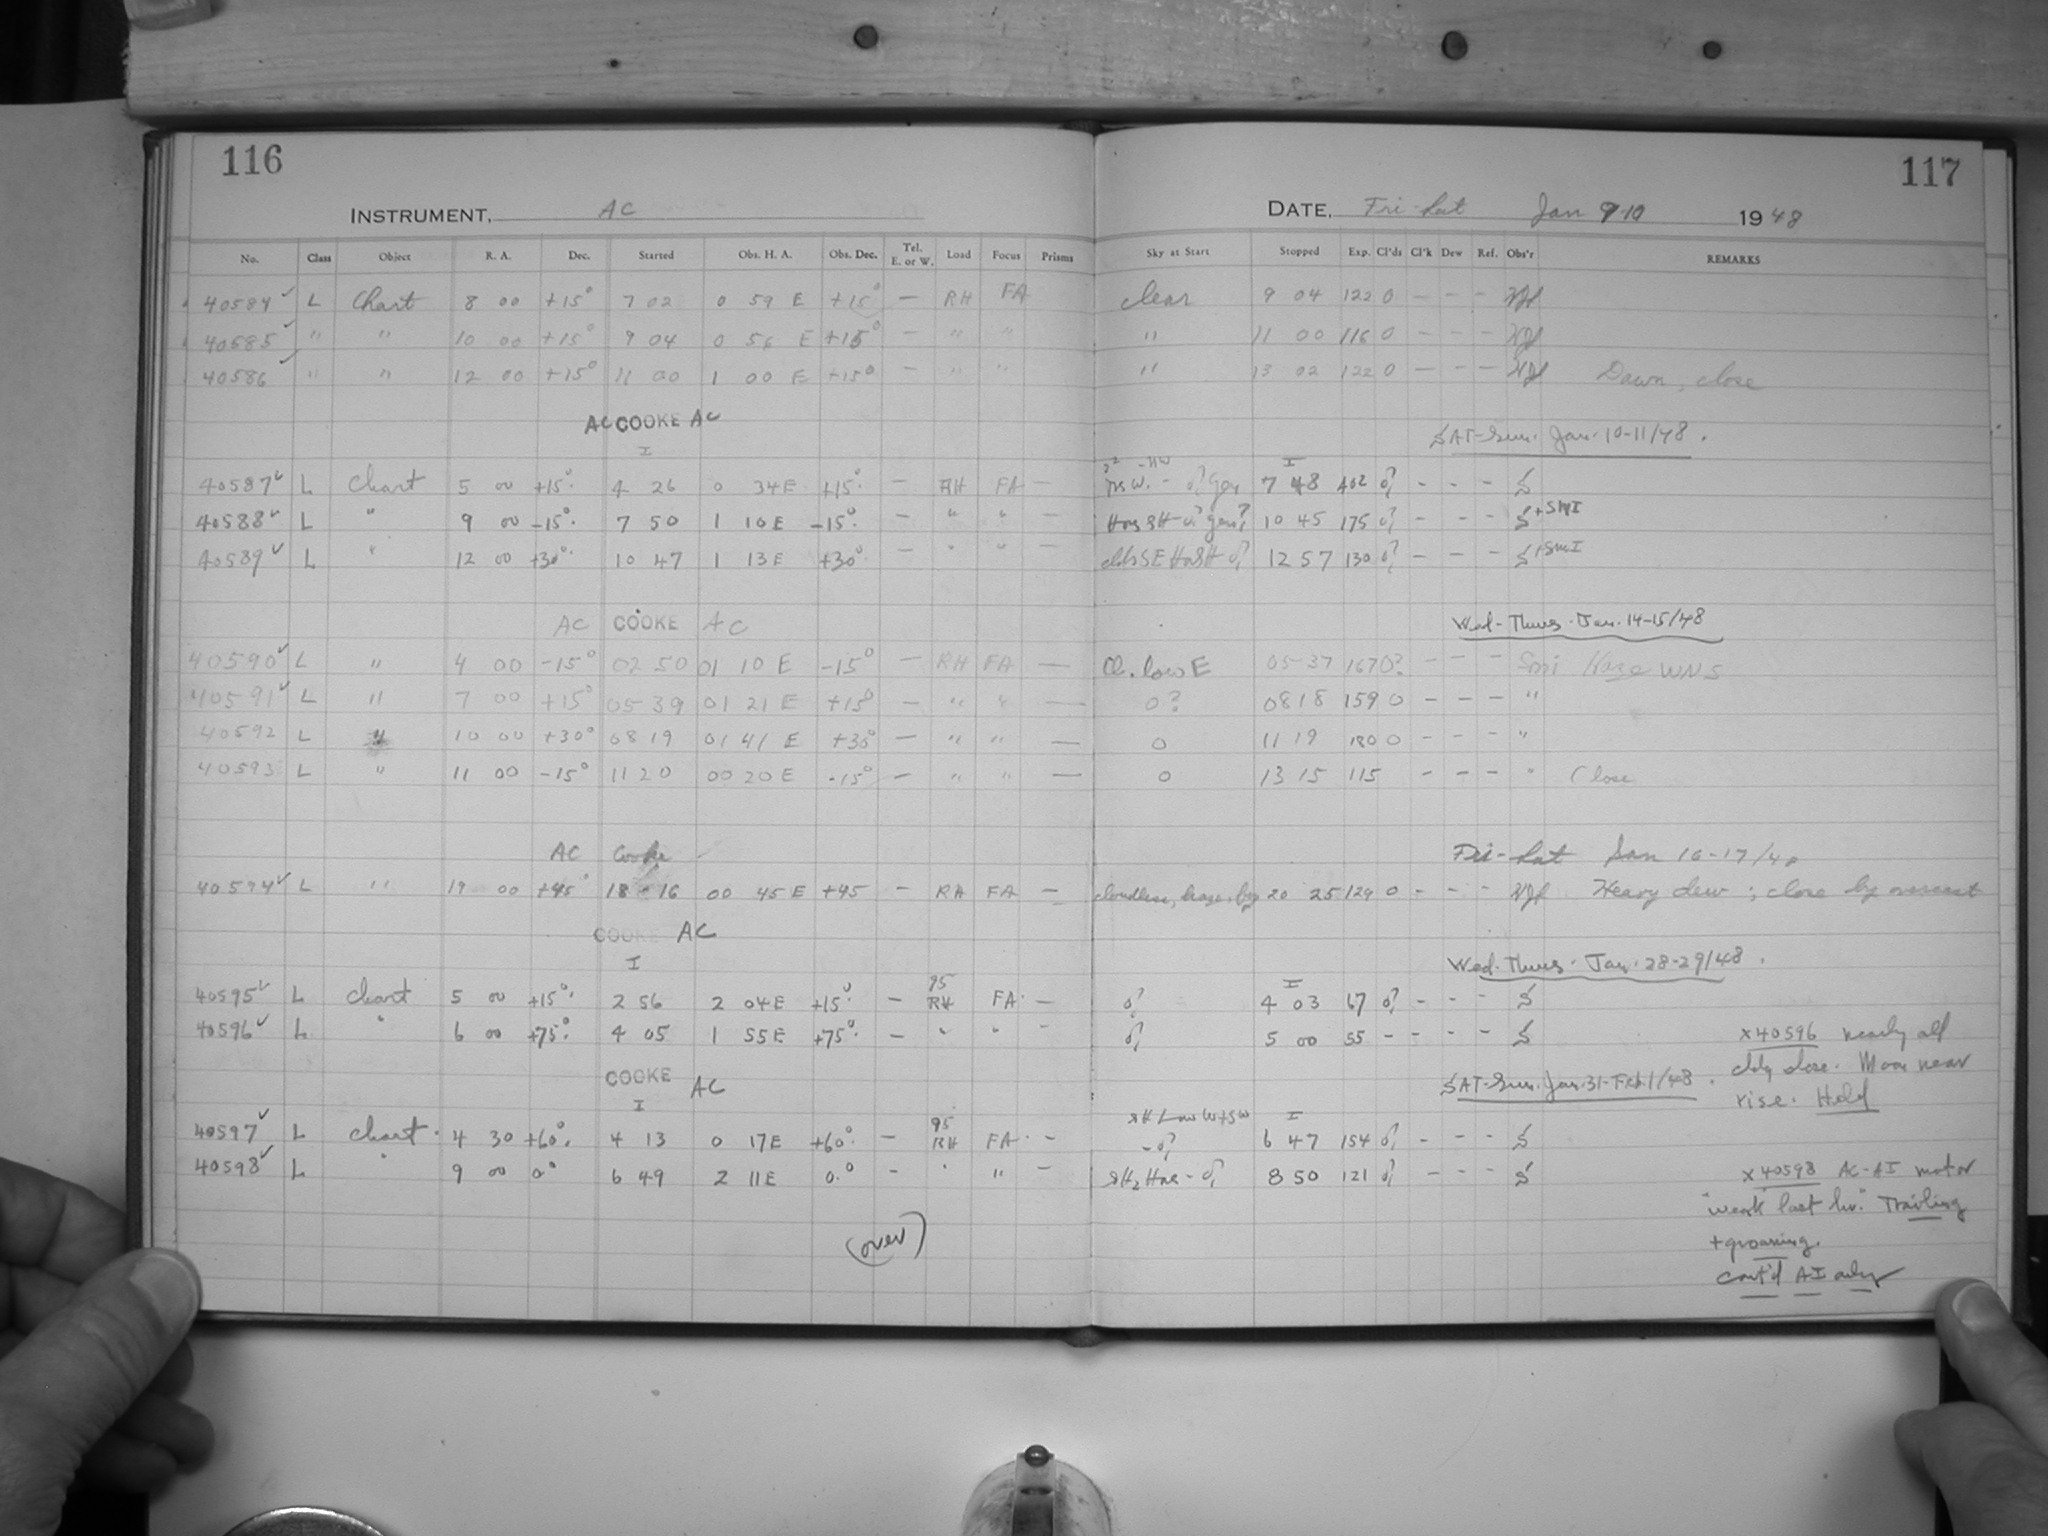 116
117
INSTRUMENT. AC DATE. Fri-Sat Jan 9-10 1948
No. Class Object R. A. Dec. Started Obs. H. A. Obs. Dec. Tel. E. or W. Load Focus Prisms Sky at Start Stopped Exp. Cl'ds Cl'k Dew Ref. Obs'r REMARKS
40584 ✓ L Chart 8 00 +15° 7 02 0 59 E +15° — RH FA clear 9 04 122 0 — — —
40585 ✓ " " 10 00 +15° 9 04 0 56 E +15° — " " " 11 00 116 0 — — —
40586 ✓ " " 12 00 +15° 11 00 1 00 E +15° — " " " 13 02 122 0 — — — Dawn, close
AC COOKE AC SAT-Sun. Jan. 10-11/48.
I
40587 ✓ L Chart 5 00 +15° 4 26 0 34 E +15° — RH FA — 7 48 202 0? - - - S
40588 ✓ L " 9 00 -15° 7 50 1 10 E -15° — " " — 10 45 175 0? - - - S + SMI
40589 ✓ L " 12 00 +30° 10 47 1 13 E +30° — " " — 12 57 130 0? - - - S + SMI
AC COOKE AC Wed-Thurs. Jan. 14-15/48
40590 ✓ L " 4 00 -15° 02 50 01 10 E -15° — RH FA — Cl. low E 05 37 167 0? - - - Smi Haze WNS
40591 ✓ L " 7 00 +15° 05 39 01 21 E +15° — " " — 0? 08 18 159 0 - - - "
40592 L " 10 00 +30° 08 19 01 41 E +30° — " " — 0 11 19 180 0 - - - "
40593 L " 11 00 -15° 11 20 00 20 E -15° — " " — 0 13 15 115 - - - " Close
AC Cooke Fri-Sat Jan 16-17/48
40594 ✓ L " 19 00 +45° 18 16 00 45 E +45 — RH FA — cloudless, haze, 20 25 129 0 - - - Heavy dew; close by overcast
COOKE AC Wed-Thurs. Jan. 28-29/48.
I
40595 ✓ L Chart 5 00 +15° 2 56 2 04 E +15° — 95 RH FA — 0? 4 03 67 0? - - - S
40596 ✓ L " 6 00 +75° 4 05 1 55 E +75° — " " — 0? 5 00 55 - - - - S x40596 nearly all
cldy close. Moon near
rise. Hold
COOKE AC SAT-Sun. Jan. 31-Feb. 1/48.
I
40597 ✓ L Chart 4 30 +60° 4 13 0 17 E +60° — 95 RH FA — Low W+SW -0? 6 47 154 0? - - - S
40598 ✓ L " 9 00 0° 6 49 2 11 E 0° - " " — 8 50 121 0? - - - S x40598 AC-AI motor
"weak last hr." Trailing
+ groaning.
(over)
Cont'd AI only